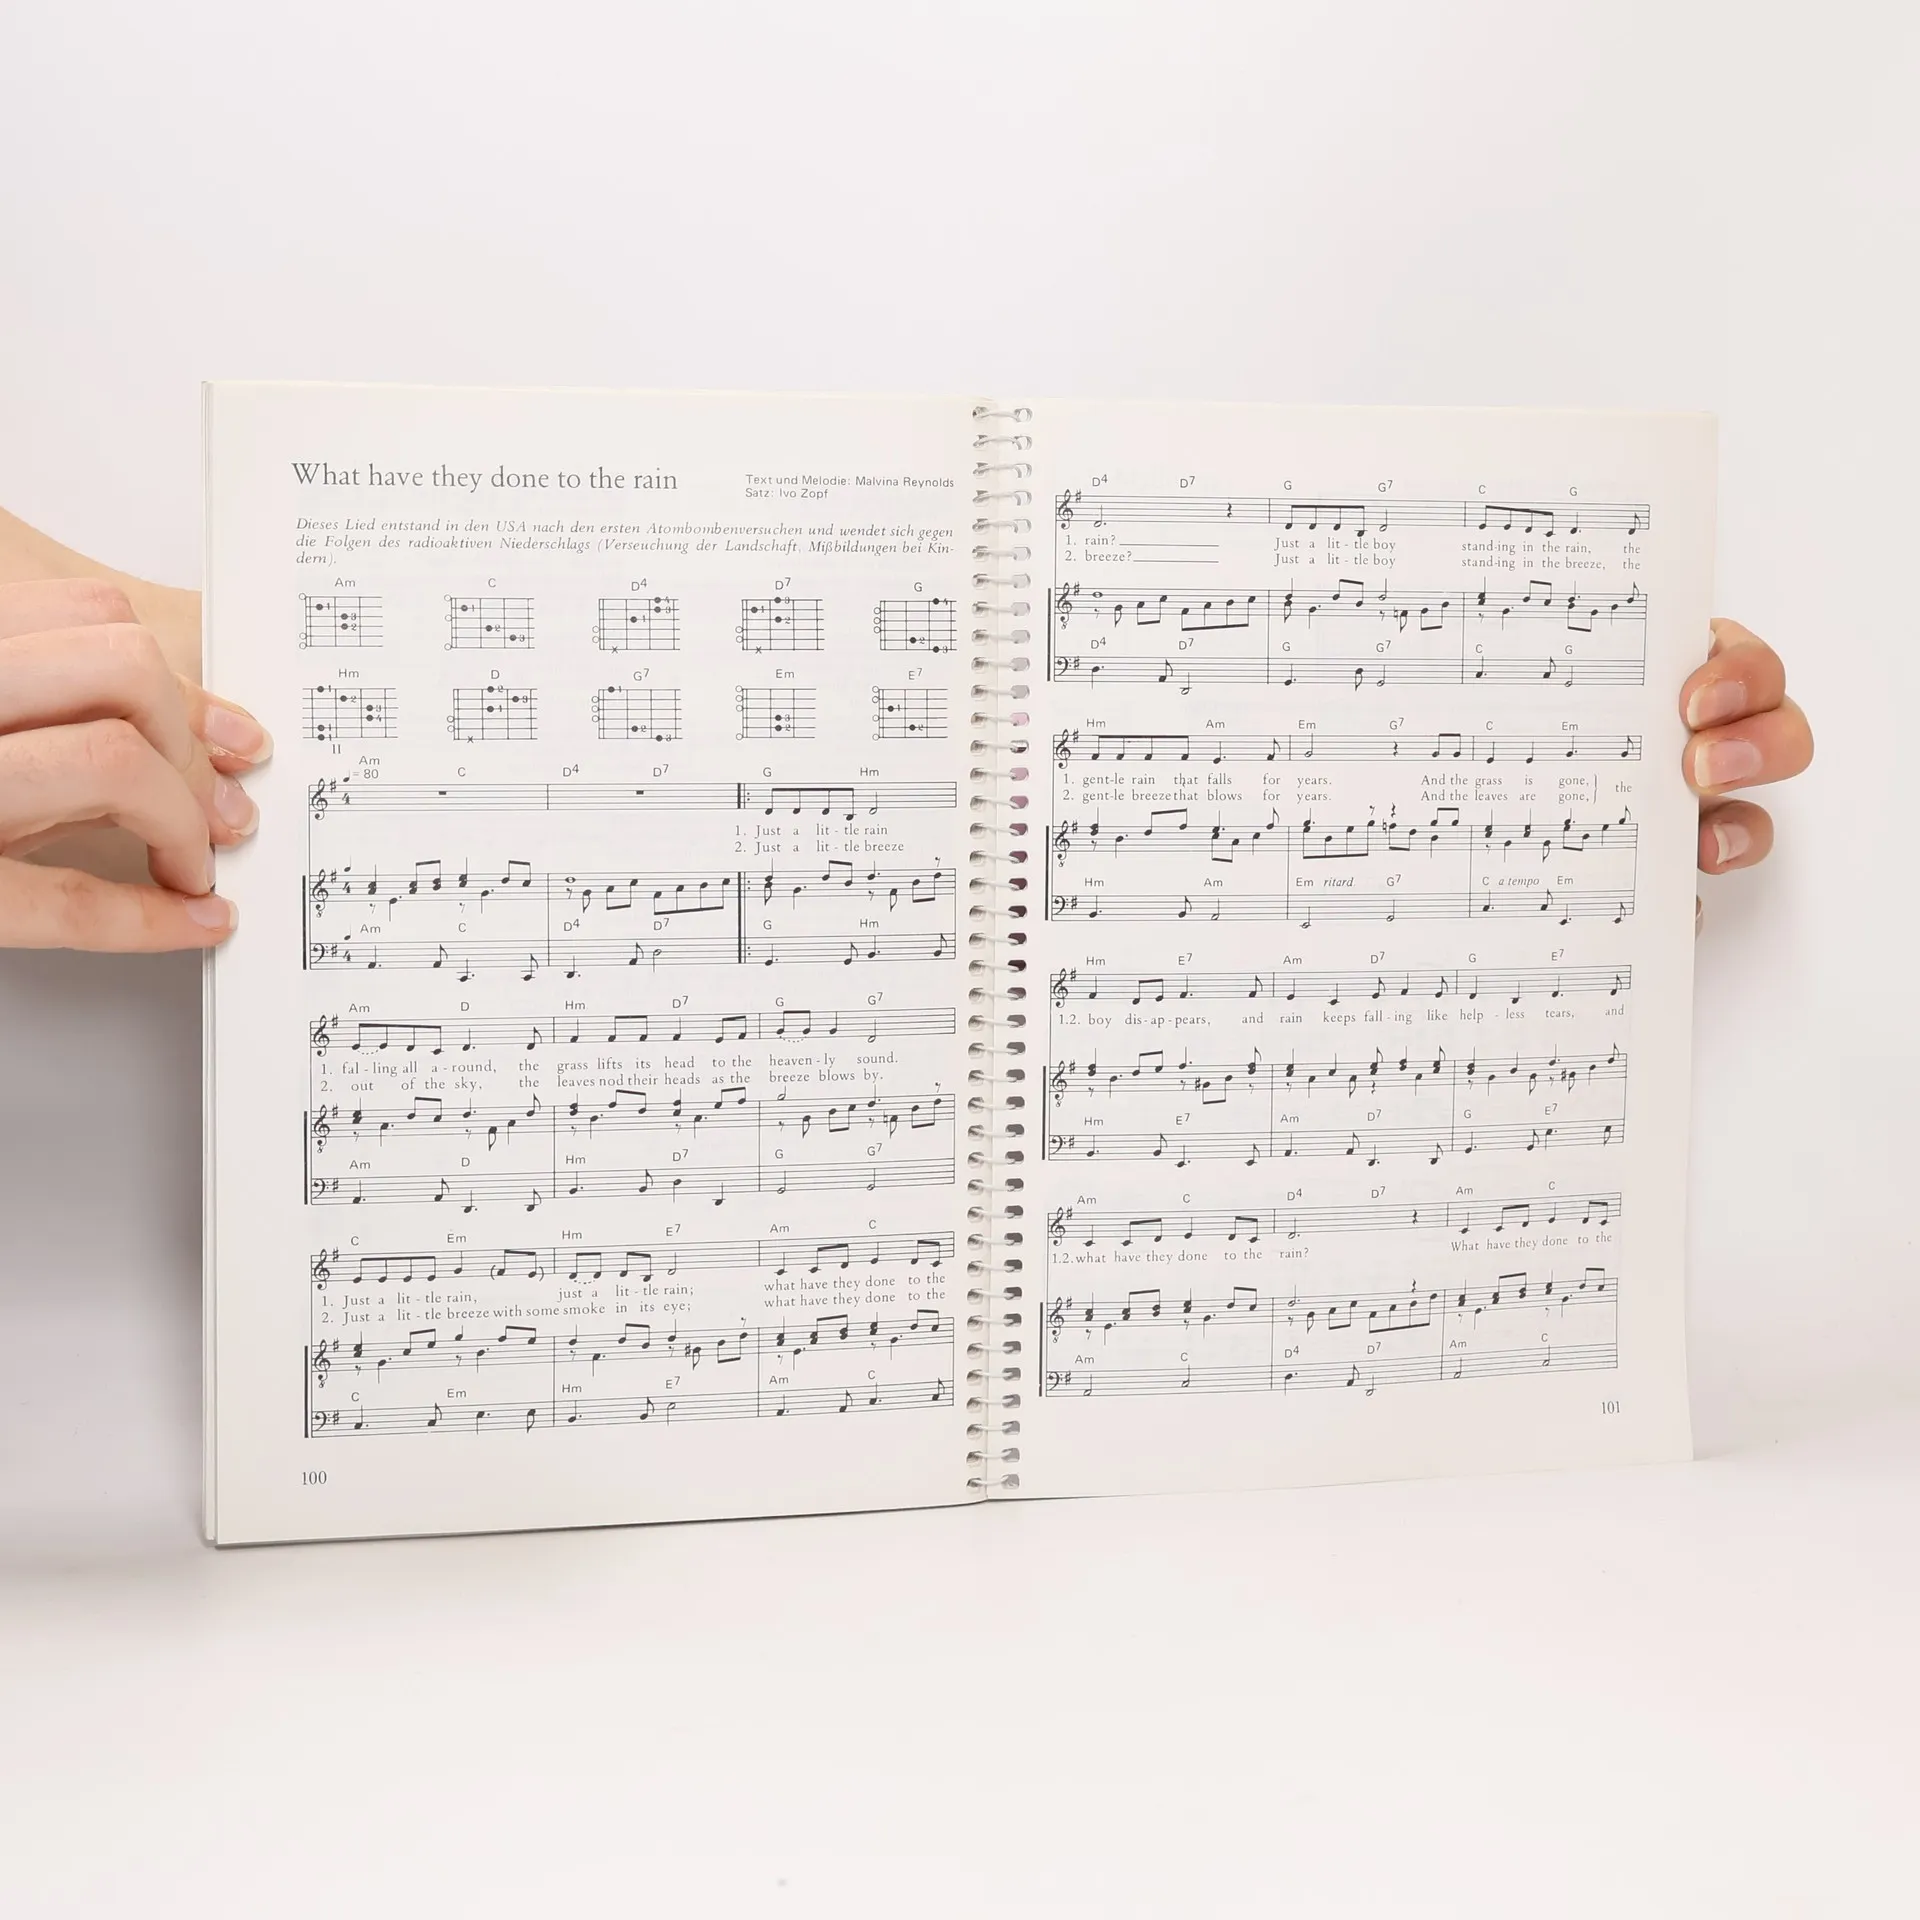 What have they done to the rain
Text und Melodie: Malvina Reynolds
Satz: Ivo Zopf
Dieses Lied entstand in den USA nach den ersten Atombombenversuchen und wendet sich gegen
die Folgen des radioaktiven Niederschlags (Verseuchung der Landschaft, Mißbildungen bei Kin-
dern).
Am C D4 D7 G
Hm D G7 Em E7
II
Am
= 80 C D4 D7 G Hm
1. Just a lit - tle rain
2. Just a lit - tle breeze
Am C D4 D7 G Hm
Am D Hm D7 G G7
1. fal - ling all a - round, the grass lifts its head to the heaven - ly sound.
2. out of the sky, the leaves nod their heads as the breeze blows by.
Am D Hm D7 G G7
C Em Hm E7 Am C
1. Just a lit - tle rain, just a lit - tle rain; what have they done to the
2. Just a lit - tle breeze with some smoke in its eye; what have they done to the
C Em Hm E7 Am C
100
D4 D7 G G7 C G
1. rain? Just a lit - tle boy stand-ing in the rain, the
2. breeze? Just a lit - tle boy stand-ing in the breeze, the
D4 D7 G G7 C G
Hm Am Em G7 C Em
1. gent-le rain that falls for years. And the grass is gone,
2. gent-le breeze that blows for years. And the leaves are gone, the
Hm Am Em ritard. G7 C a tempo Em
Hm E7 Am D7 G E7
1.2. boy dis - ap - pears, and rain keeps fall - ing like help - less tears, and
Hm E7 Am D7 G E7
Am C D4 D7 Am C
1.2. what have they done to the rain? What have they done to the
Am C D4 D7 Am C
101